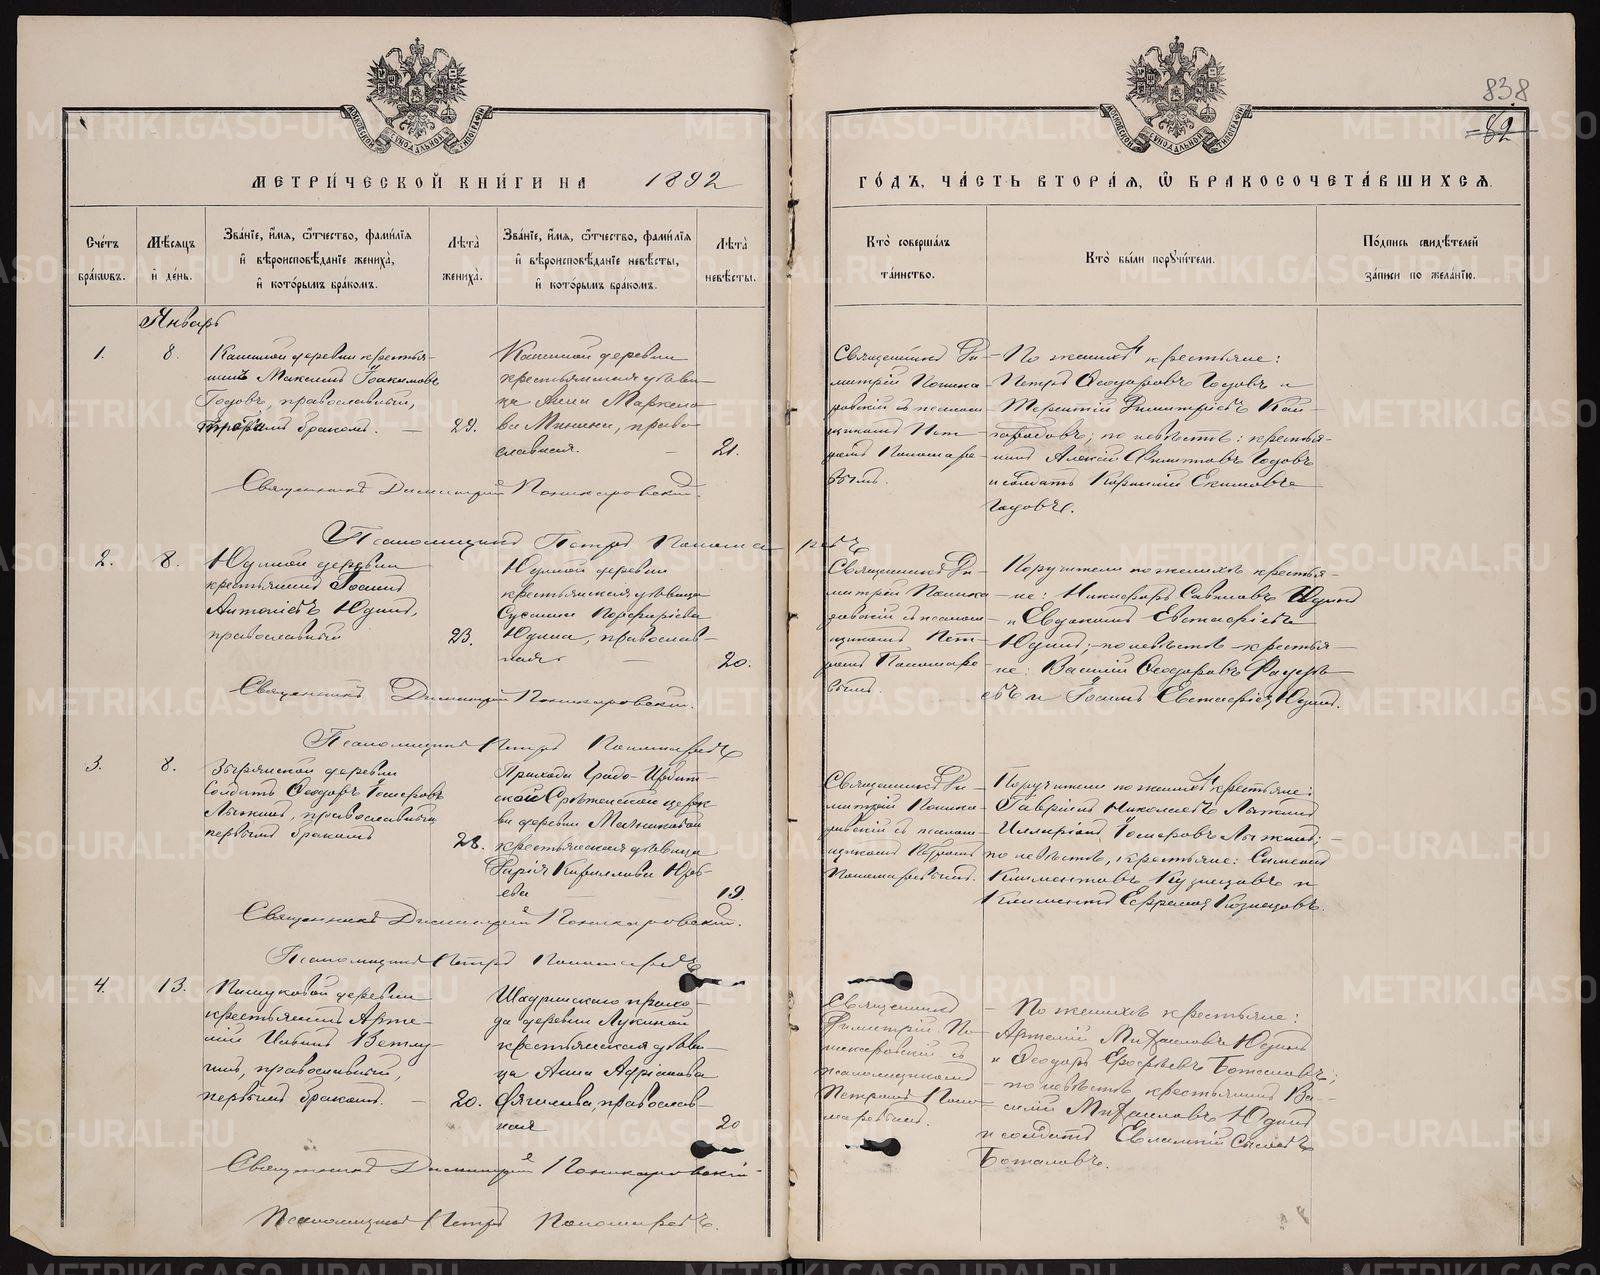 838
82
МЕТРИ́ЧЕСКОЙ КНИ́ГИ НА 1892
ГО́ДЪ, ЧА́СТЬ ВТОРА́Я, Ѿ БРАКОСОЧЕТА́ВШИХСЯ.
Сче́тъ бра́ковъ.
Мѣ́сяцъ и҆ де́нь.
Зва́нїе, и҆́мя, ѻ҆́тчество, фамѝлїя
и҆ вѣроисповѣ́данїе жениха̀,
и҆ кото́рымъ бра́комъ.
Лѣта̀ жениха̀.
Зва́нїе, и҆́мя, ѻ҆́тчество, фамѝлїя
и҆ вѣроисповѣ́данїе невѣ́сты,
и҆ кото́рымъ бра́комъ.
Лѣта̀ невѣ́сты.
Кто̀ соверша́лъ
та́инство.
Кто̀ бы́ли порꙋчи́тели.
По́дпись свидѣ́телей
за́писи по жела́нїю.
Январь
1.
8.
деревни крестья-
нинъ Максимъ Іоакимовъ
Годовъ, православный,
бракомъ.
29.
деревни
крестьянская дѣви-
ца Анна Маркело-
ва Минина, право-
славная.
21.
Священникъ Ди-
митрій Поника-
ровскій съ псалом-
щикомъ Пет-
ромъ Пономаре-
вымъ.
По женихѣ крестьяне:
Петръ Ѳеодоровъ Годовъ и
Терентій Димитріевъ Кай-
городовъ; по невѣстѣ: крестья-
нинъ Алексій Филиповъ Годовъ
и солдатъ Екимовъ
Годовъ.
Священникъ Димитрій Поникаровскій.
Псаломщикъ Петръ Пономаревъ
2.
8.
Юдиной деревни
крестьянинъ Іоаннъ
Антоніевъ Юдинъ,
православный
23.
Юдиной деревни
крестьянская дѣвица
Сусанна Порфиріева
Юдина, православ-
ная
20.
Священникъ Ди-
митрій Поника-
ровскій съ псалом-
щикомъ Пет-
ромъ Пономаре-
вымъ.
Поручители по женихѣ крестья-
не: Никифоръ Савиновъ Юдинъ
и Евдокимъ Евстафіевъ
Юдинъ; по невѣстѣ крестья-
не: Василій Ѳеодоровъ
и Іоаннъ Евстафіевъ Юдинъ.
Священникъ Димитрій Поникаровскій.
Псаломщикъ Петръ Пономаревъ
3.
8.
Зырянской деревни
солдатъ Ѳеодоръ
Лыжинъ, православный
первымъ бракомъ
28.
Прихода Градо-Ирбит-
ской Срѣтенской церк-
ви деревни Мельниковой
крестьянская дѣвица
Дарія Кириллова Юрь-
ева
19.
Священникъ Ди-
митрій Поника-
ровскій съ псалом-
щикомъ Петромъ
Пономаревымъ.
Поручители по женихѣ крестьяне:
Гавріилъ Николаевъ Лыжинъ
Лыжинъ;
по невѣстѣ, крестьяне: Симеонъ
Климентовъ Кузнецовъ и
Климентъ Ефремовъ Кузнецовъ.
Священникъ Димитрій Поникаровскій.
Псаломщикъ Петръ Пономаревъ
4.
13.
деревни
крестьянинъ Арте-
мій Ивановъ Ветлу-
гинъ, православный,
первымъ бракомъ.
20.
Шадринскаго прихо-
да деревни Лукиной
крестьянская дѣви-
ца Анна Адріанова
православ-
ная
20
Священникъ
Димитрій По-
никаровскій съ
псаломщикомъ
Петромъ Поно-
маревымъ.
По женихѣ крестьяне:
Артемій Михаиловъ Юдинъ
и Ѳеодоръ Ерофеевъ Боталовъ;
по невѣстѣ крестьянинъ Ва-
силій Михаиловъ Юдинъ
и солдатъ Евлампій
Боталовъ.
Священникъ Димитрій Поникаровскій
Псаломщикъ Петръ Пономаревъ.
METRIKI.GASO-URAL.RU